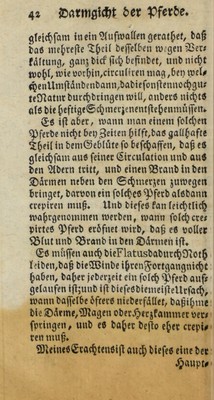 42 Darmgicht der Pferde.
gleichsam in ein Aufwallen gerathet, daß
das mehreste Theil desselben wegen Ver-
kältung, ganz dick sich befindet, und nicht
wohl, wie vorhin, circuliren mag, bey wel-
chen Umständen dann, da die sonsten noch gu-
te Natur durchdringen will, anders nichts
als die heftige Schmerzen entstehen müssen.
Es ist aber, wann man einem solchen
Pferde nicht bey Zeiten hilft, das gallhafte
Theil in dem Geblüte so beschaffen, daß es
gleichsam aus seiner Circulation und aus
den Adern tritt, und einen Brand in den
Därmen neben den Schmerzen zuwegen
bringet, darvon ein solches Pferd alsdann
crepiren muß. Und dieses kan leichtlich
wahrgenommen werden, wann solch cre-
pirtes Pferd eröfnet wird, daß es voller
Blut und Brand in den Därmen ist.
Es müssen auch die Flatus dadurch Noth
leiden, daß die Winde ihren Fortgang nicht
haben, daher jederzeit ein solch Pferd auf-
gelaufen ist; und ist dieses die meiste Ursach,
wann dasselbe öfters niederfället, daß ihme
die Därme, Magen oder Herzkammer ver-
springen, und es daher desto eher crepi-
ren muß.
Meines Erachtens ist auch dieses eine der
Haupt-